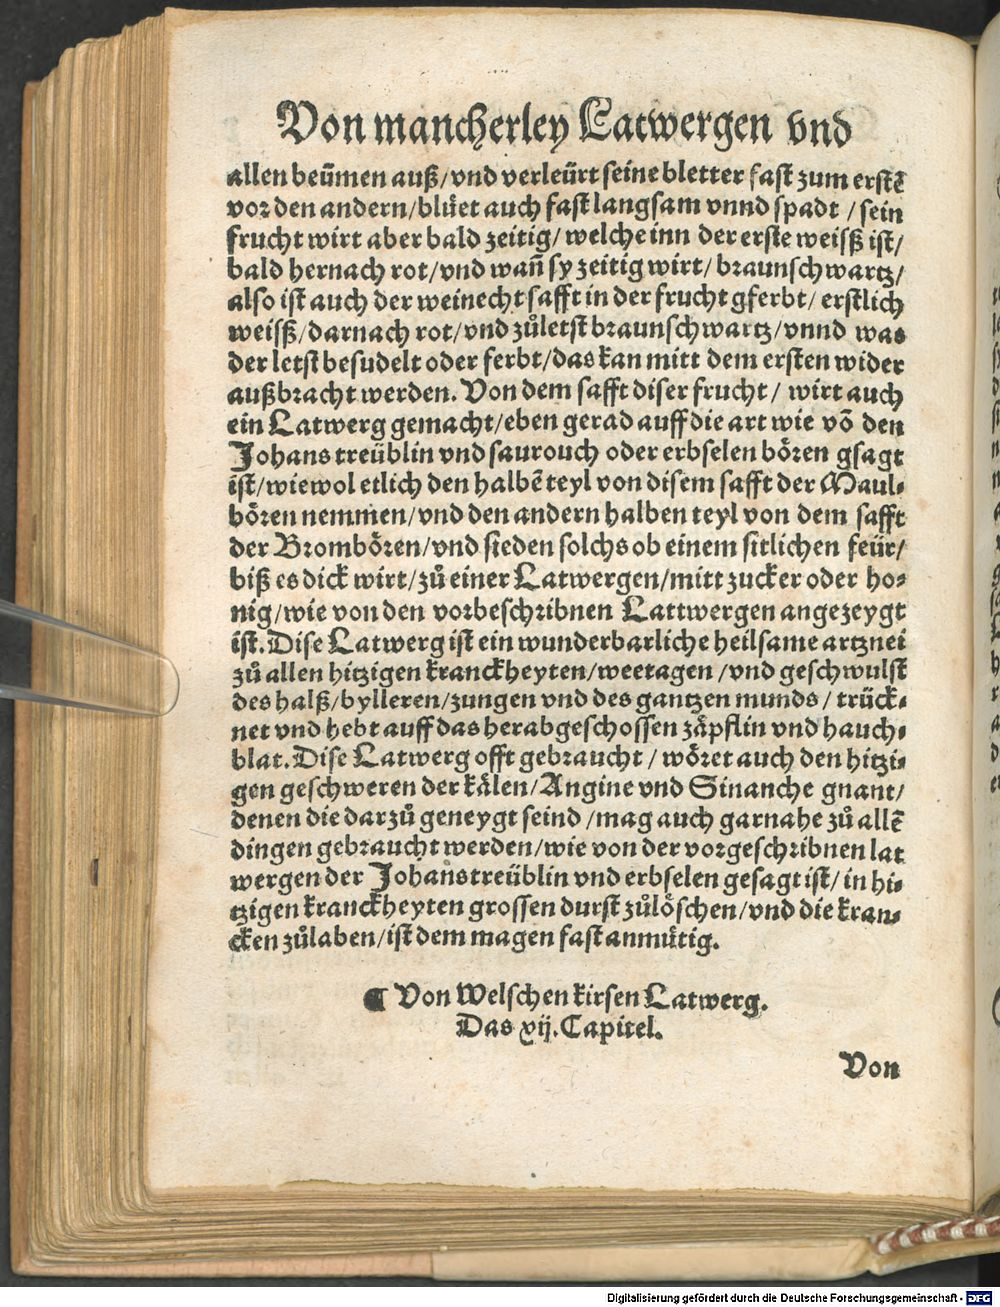 Von mancherley Latwergen vnd
allen beümen auß/vnd verleürt seine bletter fast zum erstē
vor den andern/blüet auch fast langsam vnnd spadt / sein
frucht wirt aber bald zeitig/welche inn der erste weisß ist/
bald hernach rot/vnd wañ sy zeitig wirt/ braunschwartz/
also ist auch der weinecht safft in der frucht gferbt/ erstlich
weisß/darnach rot/vnd zůletst braunschwartz/vnnd was
der letst besudelt oder ferbt/das kan mitt dem ersten wider
außbracht werden. Von dem safft diser frucht/ wirt auch
ein Latwerg gemacht/eben gerad auff die art wie võ den
Johanstreüblin vnd saurouch oder erbselen bören gsagt
ist/wiewol etlich den halbē teyl von disem safft der Maul-
bören nemmen/vnd den andern halben teyl von dem safft
der Brombören/vnd sieden solchs ob einem sitlichen feür/
biß es dick wirt/zů einer Latwergen/mitt zucker oder ho-
nig/wie von den vorbeschribnen Lattwergen angezeygt
ist. Dise Latwerg ist ein wunderbarliche heilsame artznei
zů allen hitzigen kranckheyten/weetagen /vnd geschwulst
des halß/bylleren/zungen vnd des gantzen munds/ trück-
net vnd hebt auff das herabgeschossen zäpflin vnd hauch-
blat. Dise Latwerg offt gebraucht / wöret auch den hitzi-
gen geschweren der kälen/Angine vnd Sinanche gnant/
denen die darzů geneygt seind /mag auch garnahe zů allē
dingen gebraucht werden/wie von der vorgeschribnen lat
wergen der Johanstreüblin vnd erbselen gesagt ist/ in hi-
tzigen kranckheyten grossen durst zůlöschen/vnd die kran-
cken zůlaben/ist dem magen fast anmütig.
¶ Von Welschen kirsen Latwerg.
Das xij. Capitel.
Von
Digitalisierung gefördert durch die Deutsche Forschungsgemeinschaft - DFG